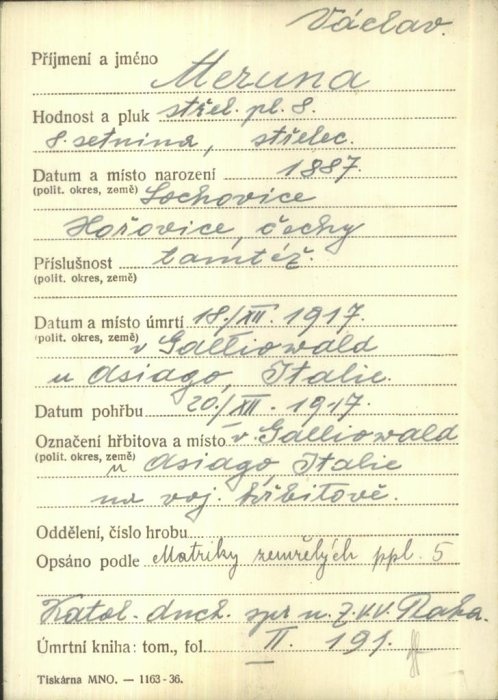 Václav.
Příjmení a jméno Meruna
Hodnost a pluk střel. pl. 8.
8. setnina, střelec.
Datum a místo narození 1887.
(polit. okres, země) Lochovice
Hořovice, Čechy
Příslušnost tamtéž.
(polit. okres, země)
Datum a místo úmrtí 18./XII. 1917.
(polit. okres, země) v Galliowald
u Asiago, Italie.
Datum pohřbu 20./XII. 1917.
Označení hřbitova a místo v Galliowald
(polit. okres, země) u Asiago, Italie
na voj. hřbitově.
Oddělení, číslo hrobu
Opsáno podle Matriky zemřelých ppl. 5
Katol. duch. spr. u Z.V.V. Praha.
Úmrtní kniha: tom., fol. II. 191.
Tiskárna MNO. — 1163-36.